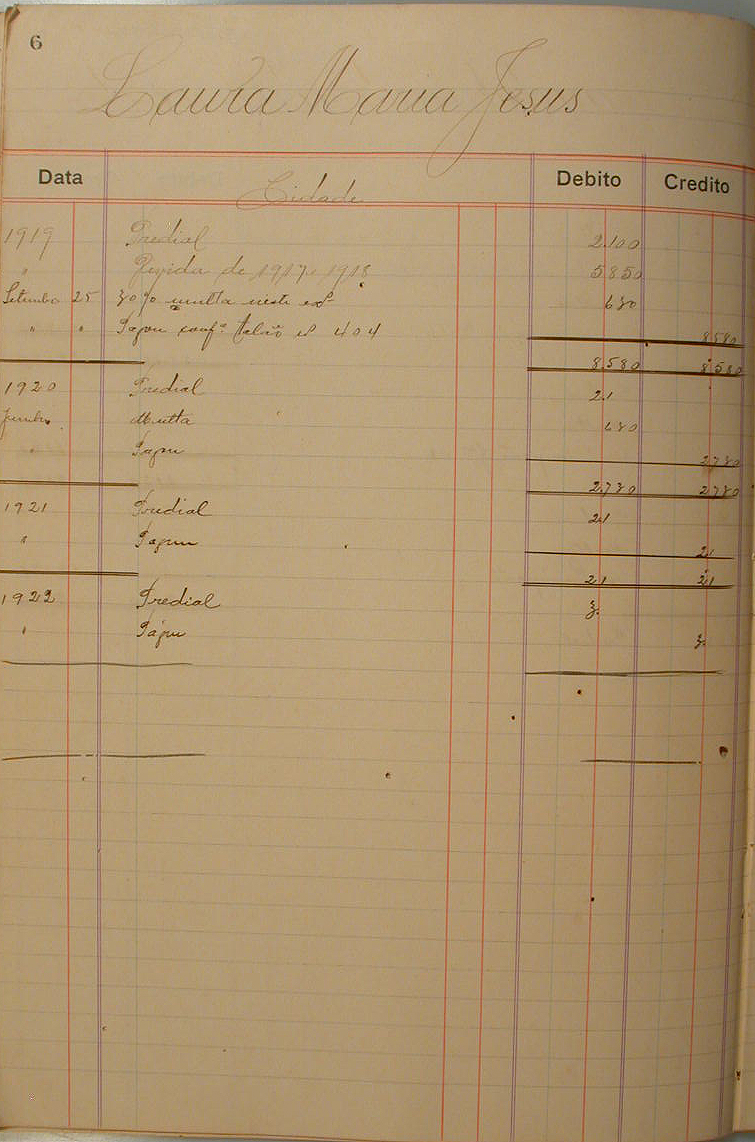 6
Laura Maria Jesus
Data Cidade Debito Credito
1919 Predial 2.100
" de 1917 e 1918 5850
Setembro 25 30% multa neste 630
" " Pagou conf.ᵉ talão nº 404 8580
8.580 8.580
1920 Predial 21
Junho Multa 630
" Pagou 2730
2.730 2730
1921 Predial 21
" Pagou 21
21 21
1922 Predial 3.
" Pagou 3.